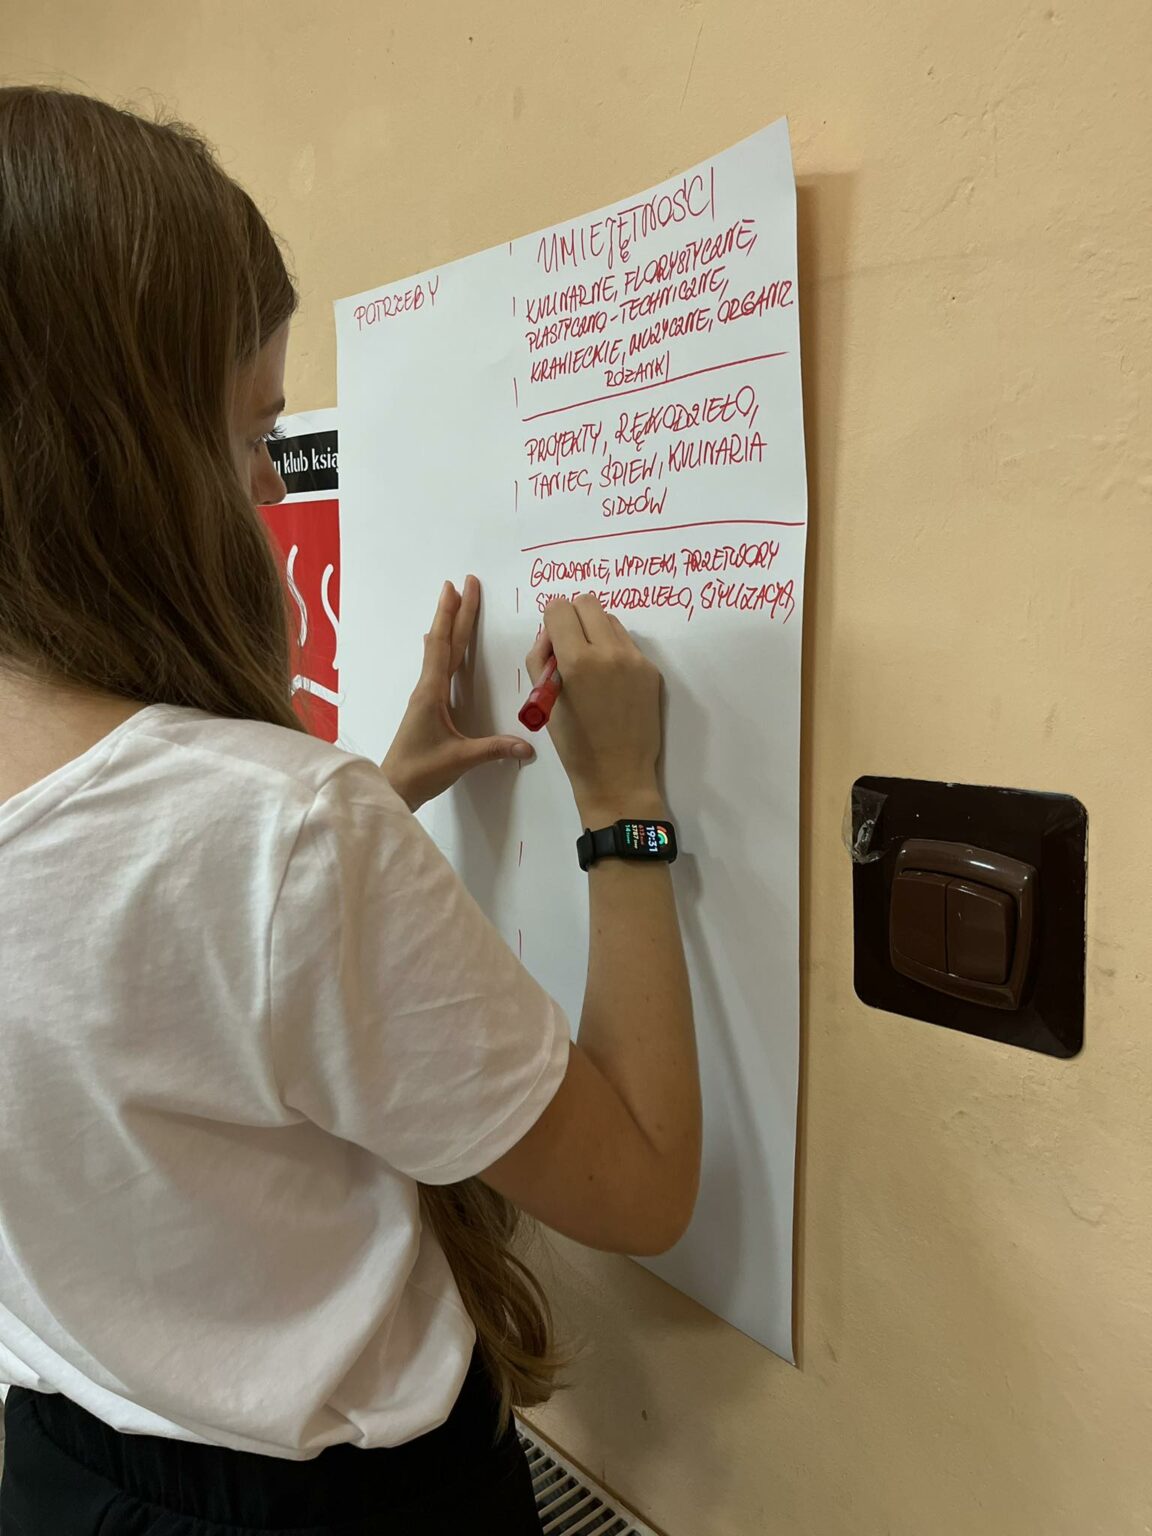 POTRZEBY
UMIEJĘTNOŚCI
KULINARNE, FLORYSTYCZNE,
PLASTYCZNO-TECHNICZNE,
KRAWIECKIE, MUZYCZNE, ORGANIZ
RÓŻANKI
PROJEKTY, RĘKODZIEŁO,
TANIEC, ŚPIEW, KULINARIA
SIDŁÓW
GOTOWANIE, WYPIEKI, PRZETWORY
RĘKODZIEŁO, STYLIZACJA,
klub ksią
19:31